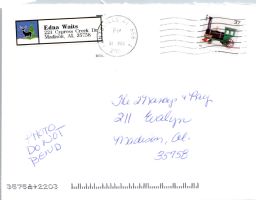 Edna Waits
221 Cypress Creek Dr
Madison, AL 35758
37
PHOTO
DO NOT
BEND
211 Evalyn
Madison, Al.
35758
35758+2203